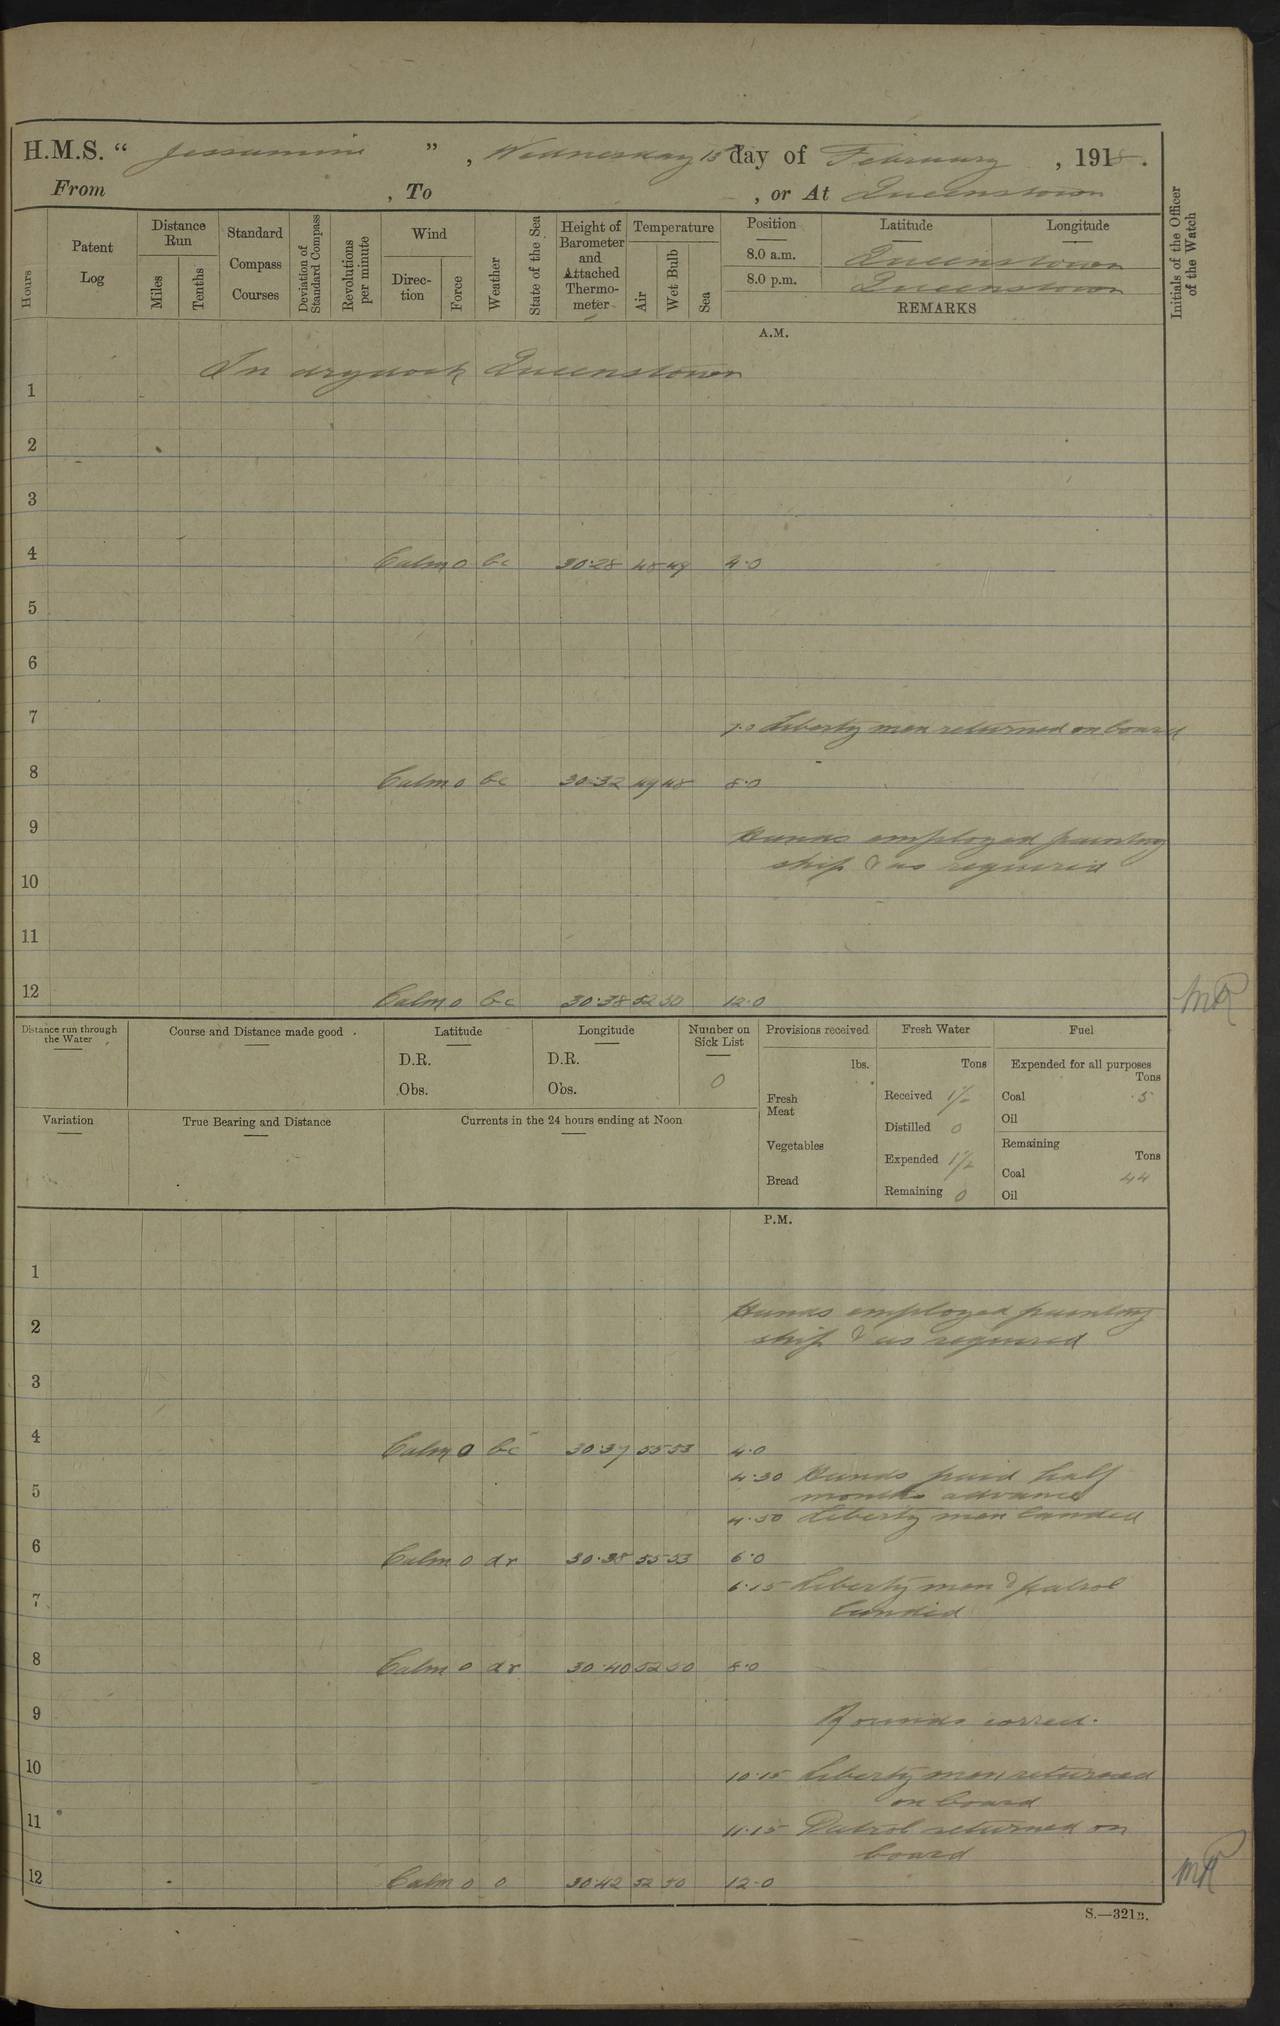 H.M.S. “ Jessamine ” , Wednesday 13th day of February , 1918 .
From , To , or At Queenstown
Hours
Patent Log
Distance Run
Miles
Tenths
Standard Compass Courses
Deviation of Standard Compass
Revolutions per minute
Wind
Direction
Force
Weather
State of the Sea
Height of Barometer and Attached Thermometer
Temperature
Air
Wet Bulb
Sea
Position Latitude Longitude
8.0 a.m. Queenstown
8.0 p.m. Queenstown
REMARKS
Initials of the Officer of the Watch
A.M.
In drydock Queenstown
1
2
3
4 Calm 0 bc 30.28 48 49 4.0
5
6
7 7.0 Liberty men returned on board
8 Calm 0 bc 30.32 49 48 8.0
9 Hands employed painting
ship & as required
10
11
12 Calm 0 bc 30.38 52 50 12.0
Distance run through the Water
Course and Distance made good
Latitude
D.R.
Obs.
Longitude
D.R.
Obs.
Number on Sick List
0
Provisions received
lbs.
Fresh Meat
Vegetables
Bread
Fresh Water
Tons
Received 1½
Distilled 0
Expended 1½
Remaining 0
Fuel
Expended for all purposes
Tons
Coal .5
Oil
Remaining
Tons
Coal 44
Oil
Variation
True Bearing and Distance
Currents in the 24 hours ending at Noon
P.M.
1
2 Hands employed painting
ship & as required
3
4 Calm 0 bc 30.37 55 53 4.0
4.30 Hands paid half
months advance
5
4.50 Liberty men landed
6 Calm 0 dr 30.38 55 53 6.0
6.15 Liberty men & patrol
7 landed
8 Calm 0 dr 30.40 52 50 8.0
9 Rounds correct.
10 10.15 Liberty men returned
on board
11 11.15 Patrol returned on
board
12 Calm 0 o 30.42 52 50 12.0
S.—321B.